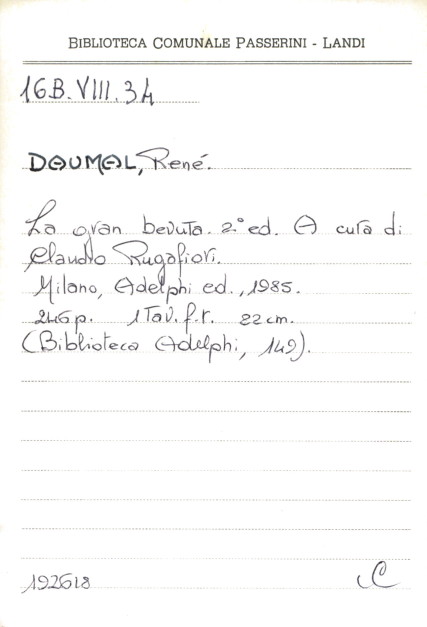 BIBLIOTECA COMUNALE PASSERINI - LANDI
16B.VIII.34
DAUMAL, René.
La gran bevuta. 2ª ed. A cura di
Claudio Rugafiori.
Milano, Adelphi ed., 1985.
246p. 1 Tav. f.t. 22 cm.
(Biblioteca Adelphi, 149).
192618 C